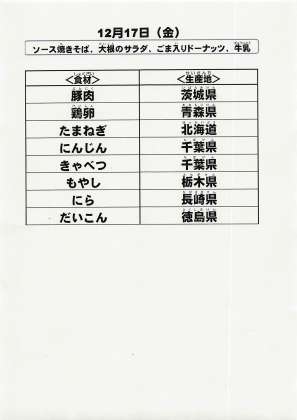 12月17日（金）
ソース焼きそば，大根のサラダ，ごま入りドーナッツ，牛乳
＜食材＞ ＜生産地＞
豚肉 茨城県
鶏卵 青森県
たまねぎ 北海道
にんじん 千葉県
きゃべつ 千葉県
もやし 栃木県
にら 長崎県
だいこん 徳島県